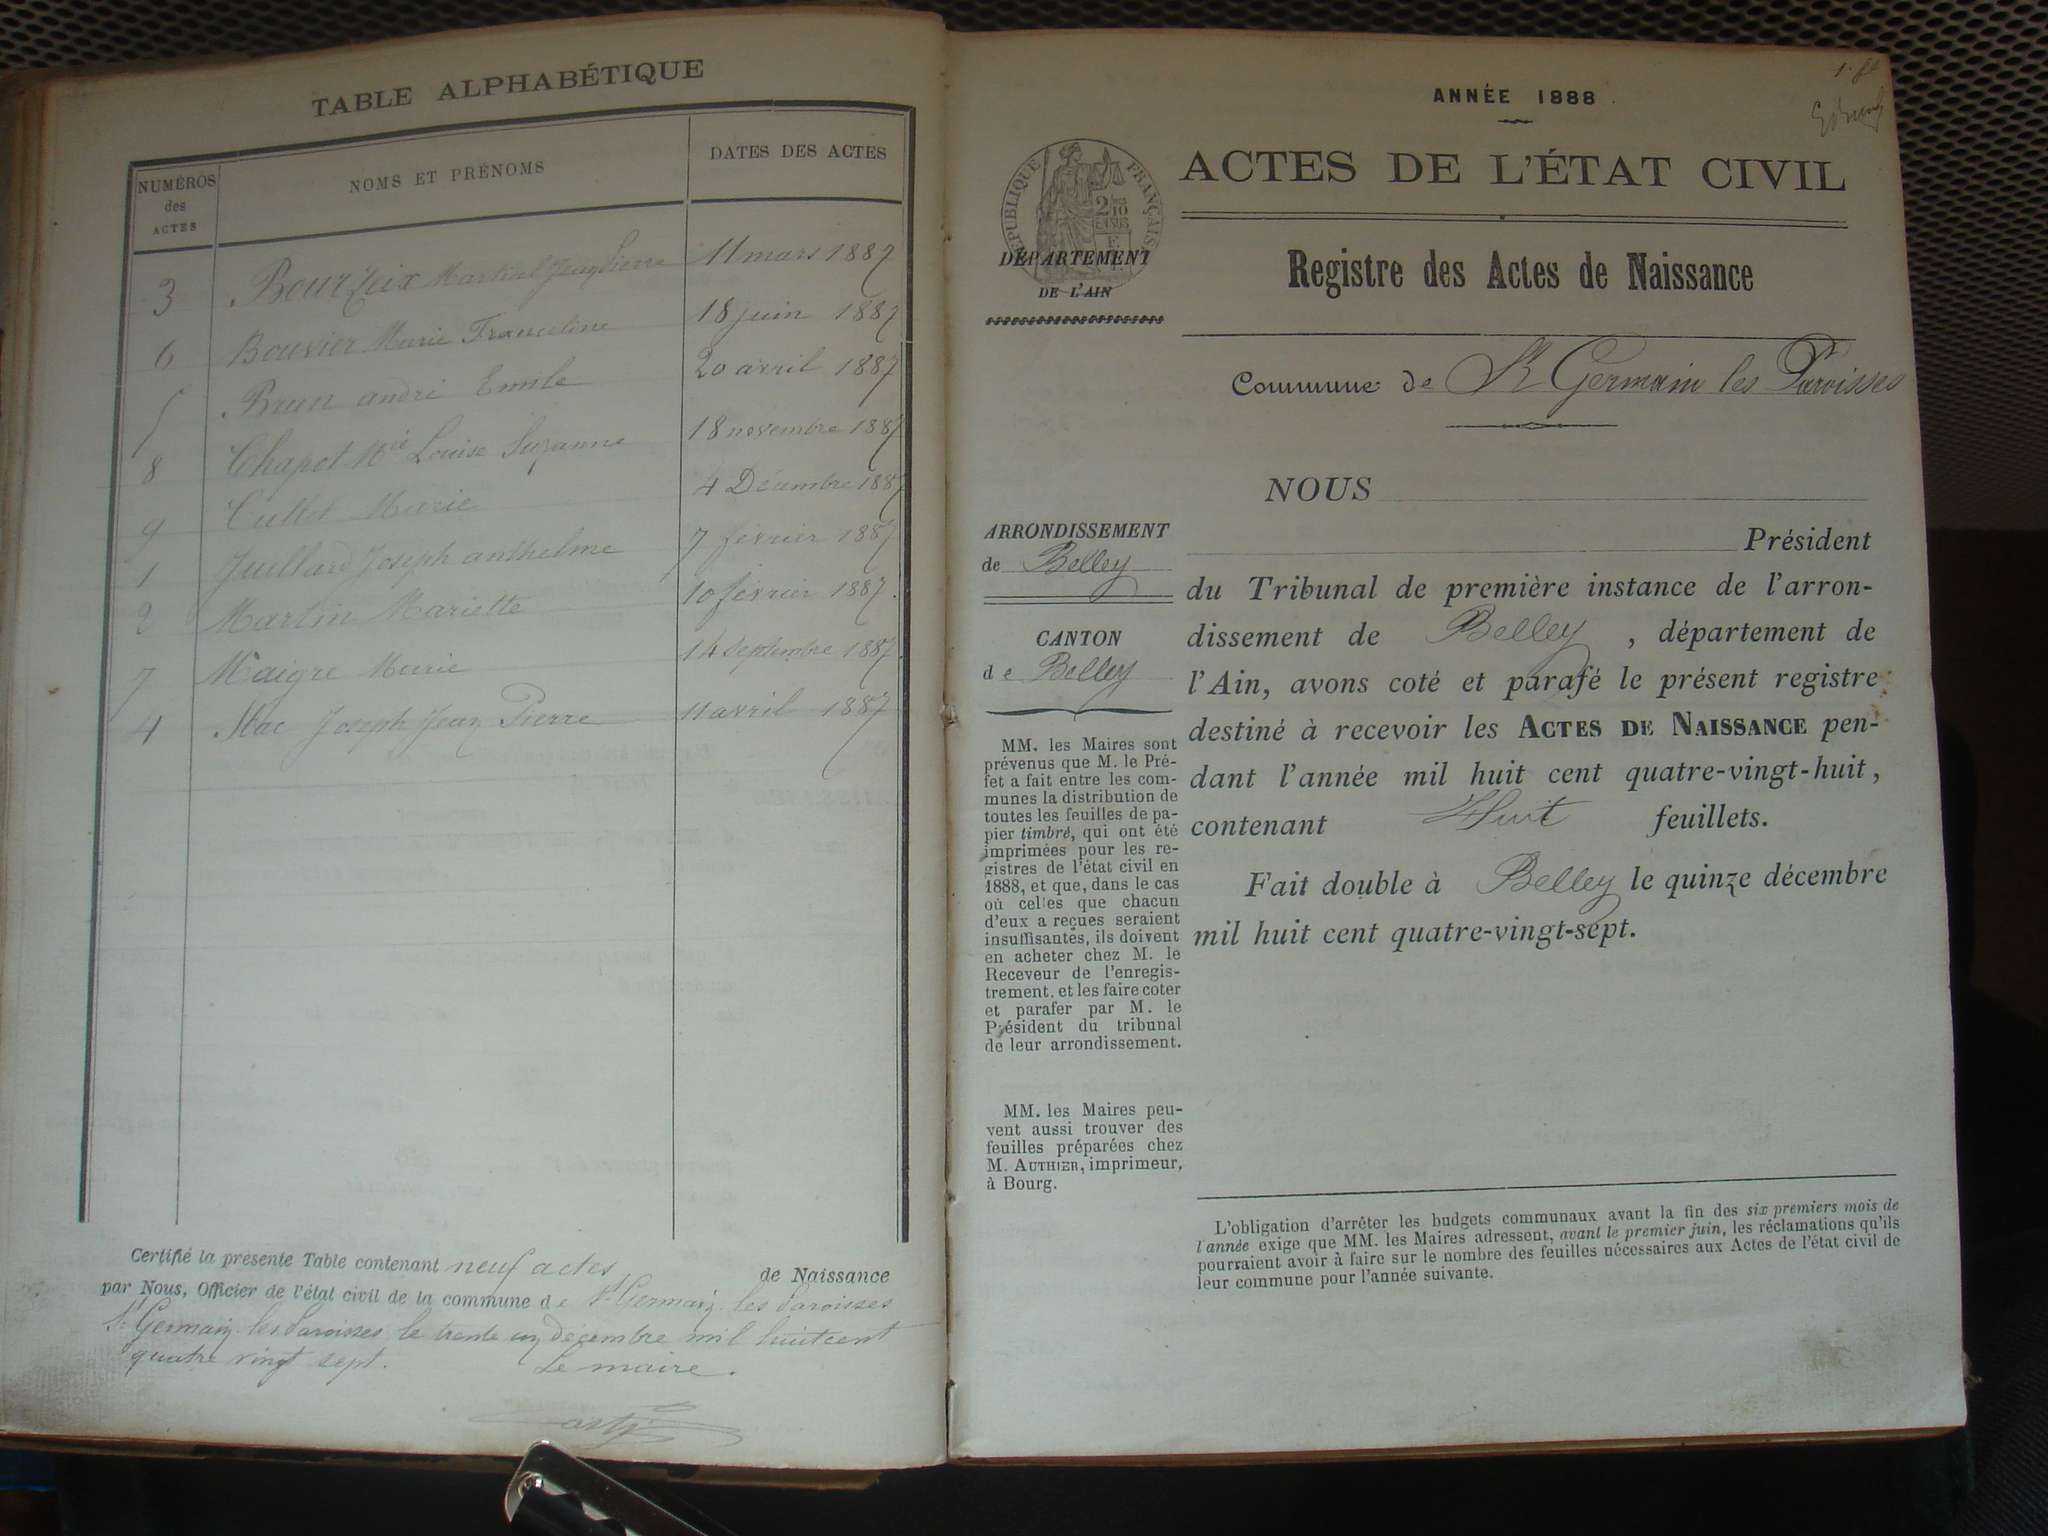 TABLE ALPHABÉTIQUE
NUMÉROS des ACTES
NOMS ET PRÉNOMS
DATES DES ACTES
3 Bourzeix Martial Jean Pierre 11 mars 1887
6 Bouvier Marie Franceline 18 juin 1887
5 Brun andré Emile 20 avril 1887
8 Chapot Mie Louise Suzanne 18 novembre 1887
9 Cullet Marie 4 Décembre 1887
1 Juillard Joseph anthelme 7 février 1887
2 Martin Mariette 10 février 1887.
7 Maigre Marie 14 septembre 1887.
4 Joseph Jean Pierre 11 avril 1887
Certifié la présente Table contenant neuf actes de Naissance
par Nous, Officier de l'état civil de la commune de St Germain les Paroisses
St Germain les Paroisses le trente un décembre mil huit cent
quatre vingt sept.
Le maire.
ANNÉE 1888
ACTES DE L'ÉTAT CIVIL
RÉPUBLIQUE FRANÇAISE
DÉPARTEMENT
DE L'AIN
Registre des Actes de Naissance
Commune de St Germain les Paroisses
ARRONDISSEMENT
de Belley
CANTON
de Belley
MM. les Maires sont
prévenus que M. le Pré-
fet a fait entre les com-
munes la distribution de
toutes les feuilles de pa-
pier timbré, qui ont été
imprimées pour les re-
gistres de l'état civil en
1888, et que, dans le cas
où celles que chacun
d'eux a reçues seraient
insuffisantes, ils doivent
en acheter chez M. le
Receveur de l'enregis-
trement, et les faire coter
et parafer par M. le
Président du tribunal
de leur arrondissement.
MM. les Maires peu-
vent aussi trouver des
feuilles préparées chez
M. AUTHIER, imprimeur,
à Bourg.
NOUS
Président
du Tribunal de première instance de l'arron-
dissement de Belley, département de
l'Ain, avons coté et parafé le présent registre
destiné à recevoir les ACTES DE NAISSANCE pen-
dant l'année mil huit cent quatre-vingt-huit,
contenant Huit feuillets.
Fait double à Belley le quinze décembre
mil huit cent quatre-vingt-sept.
L'obligation d'arrêter les budgets communaux avant la fin des six premiers mois de
l'année exige que MM. les Maires adressent, avant le premier juin, les réclamations qu'ils
pourraient avoir à faire sur le nombre des feuilles nécessaires aux Actes de l'état civil de
leur commune pour l'année suivante.